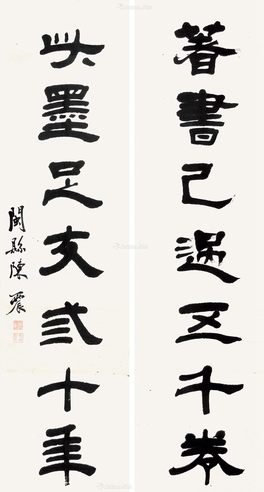 著書已過五千卷
此墨足支弍十年
閩縣陳震